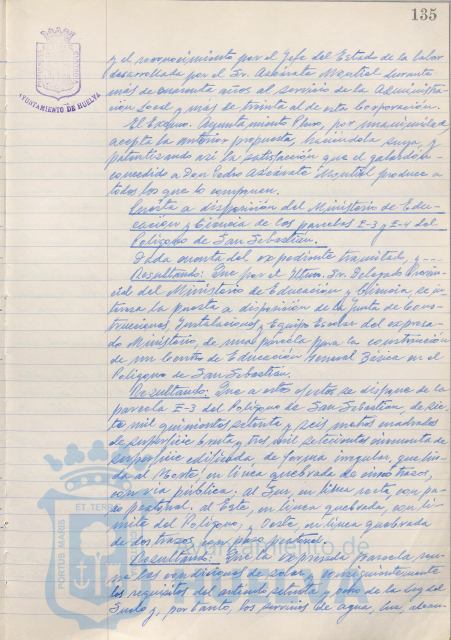 135
AYUNTAMIENTO DE HUELVA
y el reconocimiento por el Jefe del Estado de la labor
desarrollada por el Sr. Azcárate Montiel durante
más de cuarenta años al servicio de la Administra-
ción Local y más de treinta al de esta Corporación.
El Excmo. Ayuntamiento Pleno, por unanimidad,
acepta la anterior propuesta, haciéndola suya y
patentizando así la satisfacción que el galardón
concedido a Don Pedro Azcárate Montiel produce a
todos los que lo componen.
Puesta a disposición del Ministerio de Edu-
cación y Ciencia de las parcelas E-3 y E-4 del
Polígono de San Sebastián.
Dada cuenta del expediente tramitado, y
Resultando: Que por el Iltmo. Sr. Delegado Provin-
cial del Ministerio de Educación y Ciencia, se in-
teresa la puesta a disposición de la Junta de Cons-
trucciones, Instalaciones y Equipo Escolar del expresa-
do Ministerio, de una parcela para la construcción
de un Centro de Educación General Básica en el
Polígono de San Sebastián.
Resultando: Que a estos efectos se dispone de la
parcela E-3 del Polígono de San Sebastián, de sie-
te mil quinientos setenta y seis metros cuadrados
de superficie bruta y tres mil setecientos noventa de
superficie edificada, de forma irregular, que lin-
da al Norte, en línea quebrada de cinco trazos,
con vía pública. al Sur, en línea recta con pa-
so peatonal. al Este, en línea quebrada, con lí-
mite del Polígono, y Oeste, en línea quebrada
de dos trazos, con paso peatonal.
Resultando: Que la expresada parcela reú-
ne las condiciones de solar, y consiguientemente
los requisitos del artículo setenta y ocho de la Ley del
Suelo y, por tanto, los servicios de agua, luz, alcan-
PORTUS MARIS
ET TERR
Ayuntamiento de